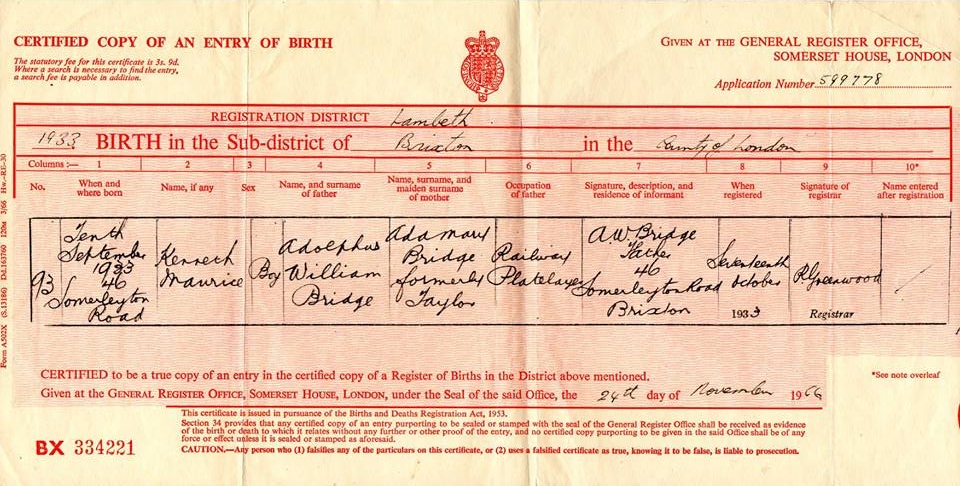 CERTIFIED COPY OF AN ENTRY OF BIRTH
The statutory fee for this certificate is 3s. 9d.
Where a search is necessary to find the entry,
a search fee is payable in addition.
GIVEN AT THE GENERAL REGISTER OFFICE,
SOMERSET HOUSE, LONDON
Application Number 599778
REGISTRATION DISTRICT Lambeth
1933 BIRTH in the Sub-district of Brixton in the County of London
Columns :— 1 2 3 4 5 6 7 8 9 10*
No. When and where born Name, if any Sex Name, and surname of father Name, surname, and maiden surname of mother Occupation of father Signature, description, and residence of informant When registered Signature of registrar Name entered after registration
93
Tenth
September
1933
46
Somerleyton
Road
Kenneth
Maurice
Boy
Adolphus
William
Bridge
Ada Mary
Bridge
formerly
Taylor
Railway
Platelayer
A.W. Bridge
Father
46
Somerleyton Road
Brixton
Seventeenth
October
1933
R Greenwood
Registrar
CERTIFIED to be a true copy of an entry in the certified copy of a Register of Births in the District above mentioned.
Given at the GENERAL REGISTER OFFICE, SOMERSET HOUSE, LONDON, under the Seal of the said Office, the 24th day of November 1966
*See note overleaf
This certificate is issued in pursuance of the Births and Deaths Registration Act, 1953.
Section 34 provides that any certified copy of an entry purporting to be sealed or stamped with the seal of the General Register Office shall be received as evidence
of the birth or death to which it relates without any further or other proof of the entry, and no certified copy purporting to be given in the said Office shall be of any
force or effect unless it is sealed or stamped as aforesaid.
CAUTION.—Any person who (1) falsifies any of the particulars on this certificate, or (2) uses a falsified certificate as true, knowing it to be false, is liable to prosecution.
BX 334221
Form A502X (S.13186) Dd.163760 120m 3/66 Hw.—RE-30